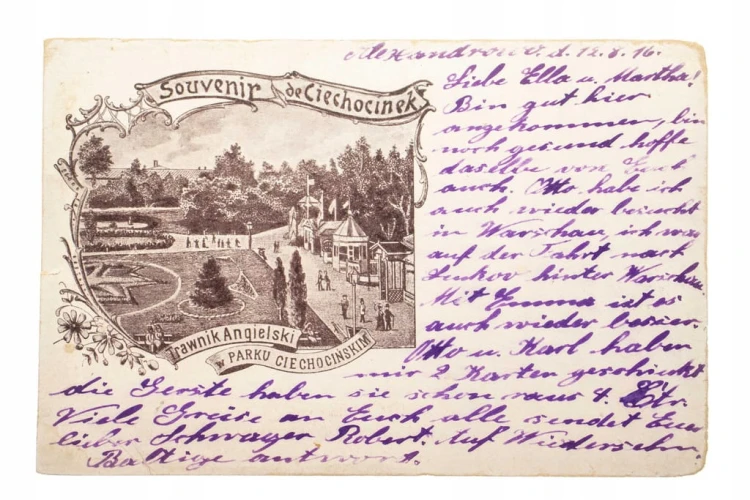 Alexandrowo. d. 12.8.16.
Souvenir de Ciechocinek
Liebe Ella u. Martha!
Bin gut hier
angekommen, bin
noch gesund hoffe
daselbe von Euch
auch. Otto habe ich
auch wieder besucht
in Warschau, ich war
auf der Fahrt nach
Lukov hinter Warschau.
Mit Emma ist es
auch wieder besser.
Trawnik Angielski
w PARKU CIECHOCIŃSKIM
Otto u. Karl haben
mir 2 Karten geschickt
die Gerste haben sie schon raus 4. Ztr.
Viele Grüsse an Euch alle sendet Euer
lieber Schwager Robert. Auf Wiedersehn.
Baltige antwort.